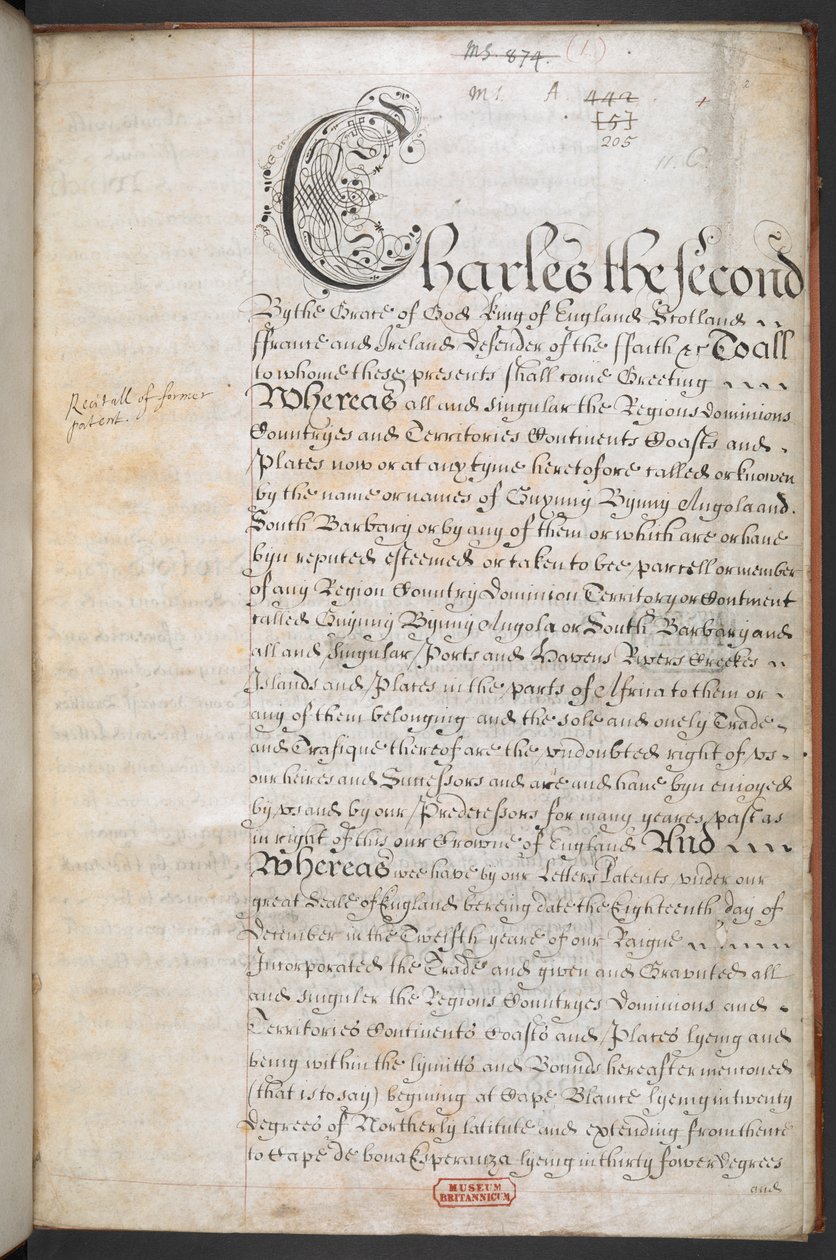 MS. 874. (1.)
MS. A. 442 +
[5]
205
11. C
Charles the second
By the Grace of God King of England Scotland
ffrance and Ireland Defender of the ffaith &c To all
to whome these presents shall come Greeting
Recitall of former
patent.
Whereas all and singular the Regions Dominions
Countryes and Territories Continents Coasts and
Places now or at any tyme heretofore called or knowen
by the name or names of Guynny Bynny Angola and
South Barbary or by any of them or which are or haue
byn reputed esteemed or taken to bee parcell or member
of any Region Country Dominion Territory or Continent
called Guynny Bynny Angola or South Barbary and
all and singular Ports and Havens Rivers Creekes
Islands and Places in the parts of Africa to them or
any of them belonging and the sole and onely Trade
and Trafique thereof are the vndoubted right of vs
our heires and Successors and are and haue byn enioyed
by vs and by our Predecessors for many yeares past as
in right of this our Crowne of England And
Whereas wee have by our Letters Patents vnder our
great Seale of England bereing date the Eighteenth day of
December in the Twelfth yeare of our Raigne
Incorporated the Trade and given and Graunted all
and singuler the Regions Countryes Dominions and
Territories Continents Coasts and Places lyeing and
being within the lymitts and Bounds hereafter mentioned
(that is to say) begining at Cape Blanck lyeing in twenty
degrees of Northerly latitude and extending from thence
to Cape de bona Esperanza lyeing in thirty fower degrees
and
MUSEUM
BRITANNICUM